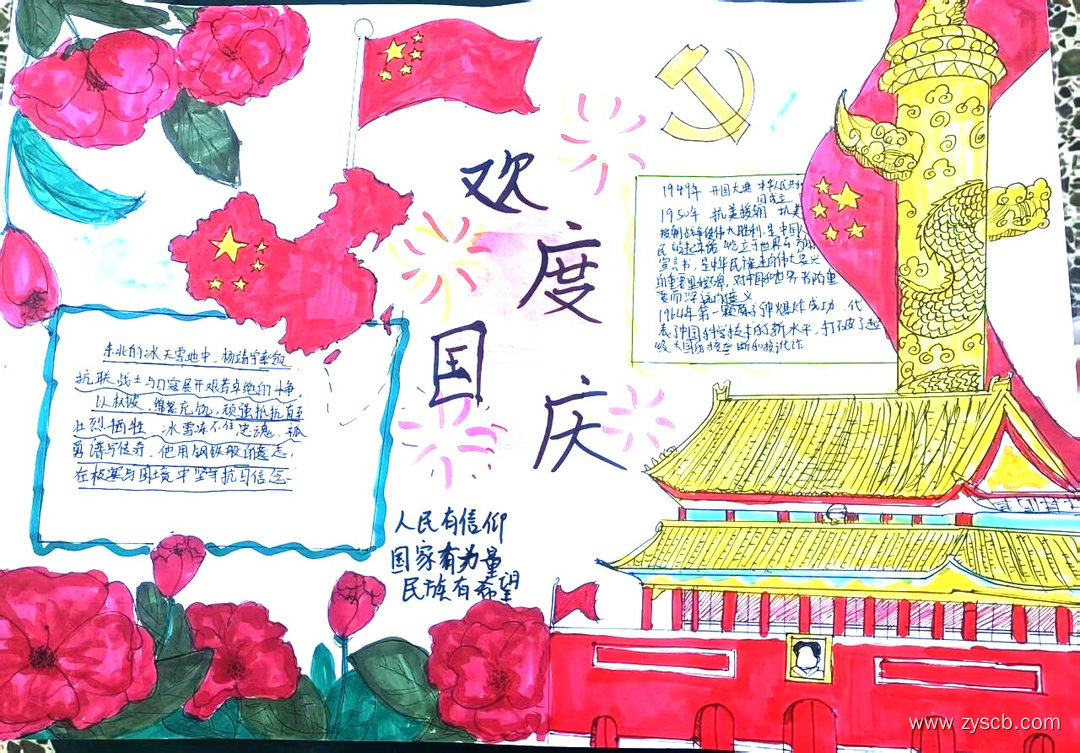 欢度国庆
1949年 开国大典 中华人民共和
国成立
1950年 抗美援朝 抗美
援朝战争伟大胜利,是中国人
民站起来后屹立于世界东方的
宣言书,是中华民族走向伟大复兴
的重要里程碑,对中国和世界都有重
要而深远的意义
1964年第一颗原子弹爆炸成功 代
表了中国科学技术的新水平,打破了超
级大国的核垄断和核讹诈
东北的冰天雪地中,杨靖宇率领
抗联战士与日寇展开艰苦卓绝的斗争
以林被,绵絮充饥,顽强抵抗直至
壮烈牺牲 冰雪冻不住忠魂,孤
勇谱写传奇,他用钢铁般的意志,
在极寒与困境中坚守抗日信念
人民有信仰
国家有力量
民族有希望
www.zyscb.com